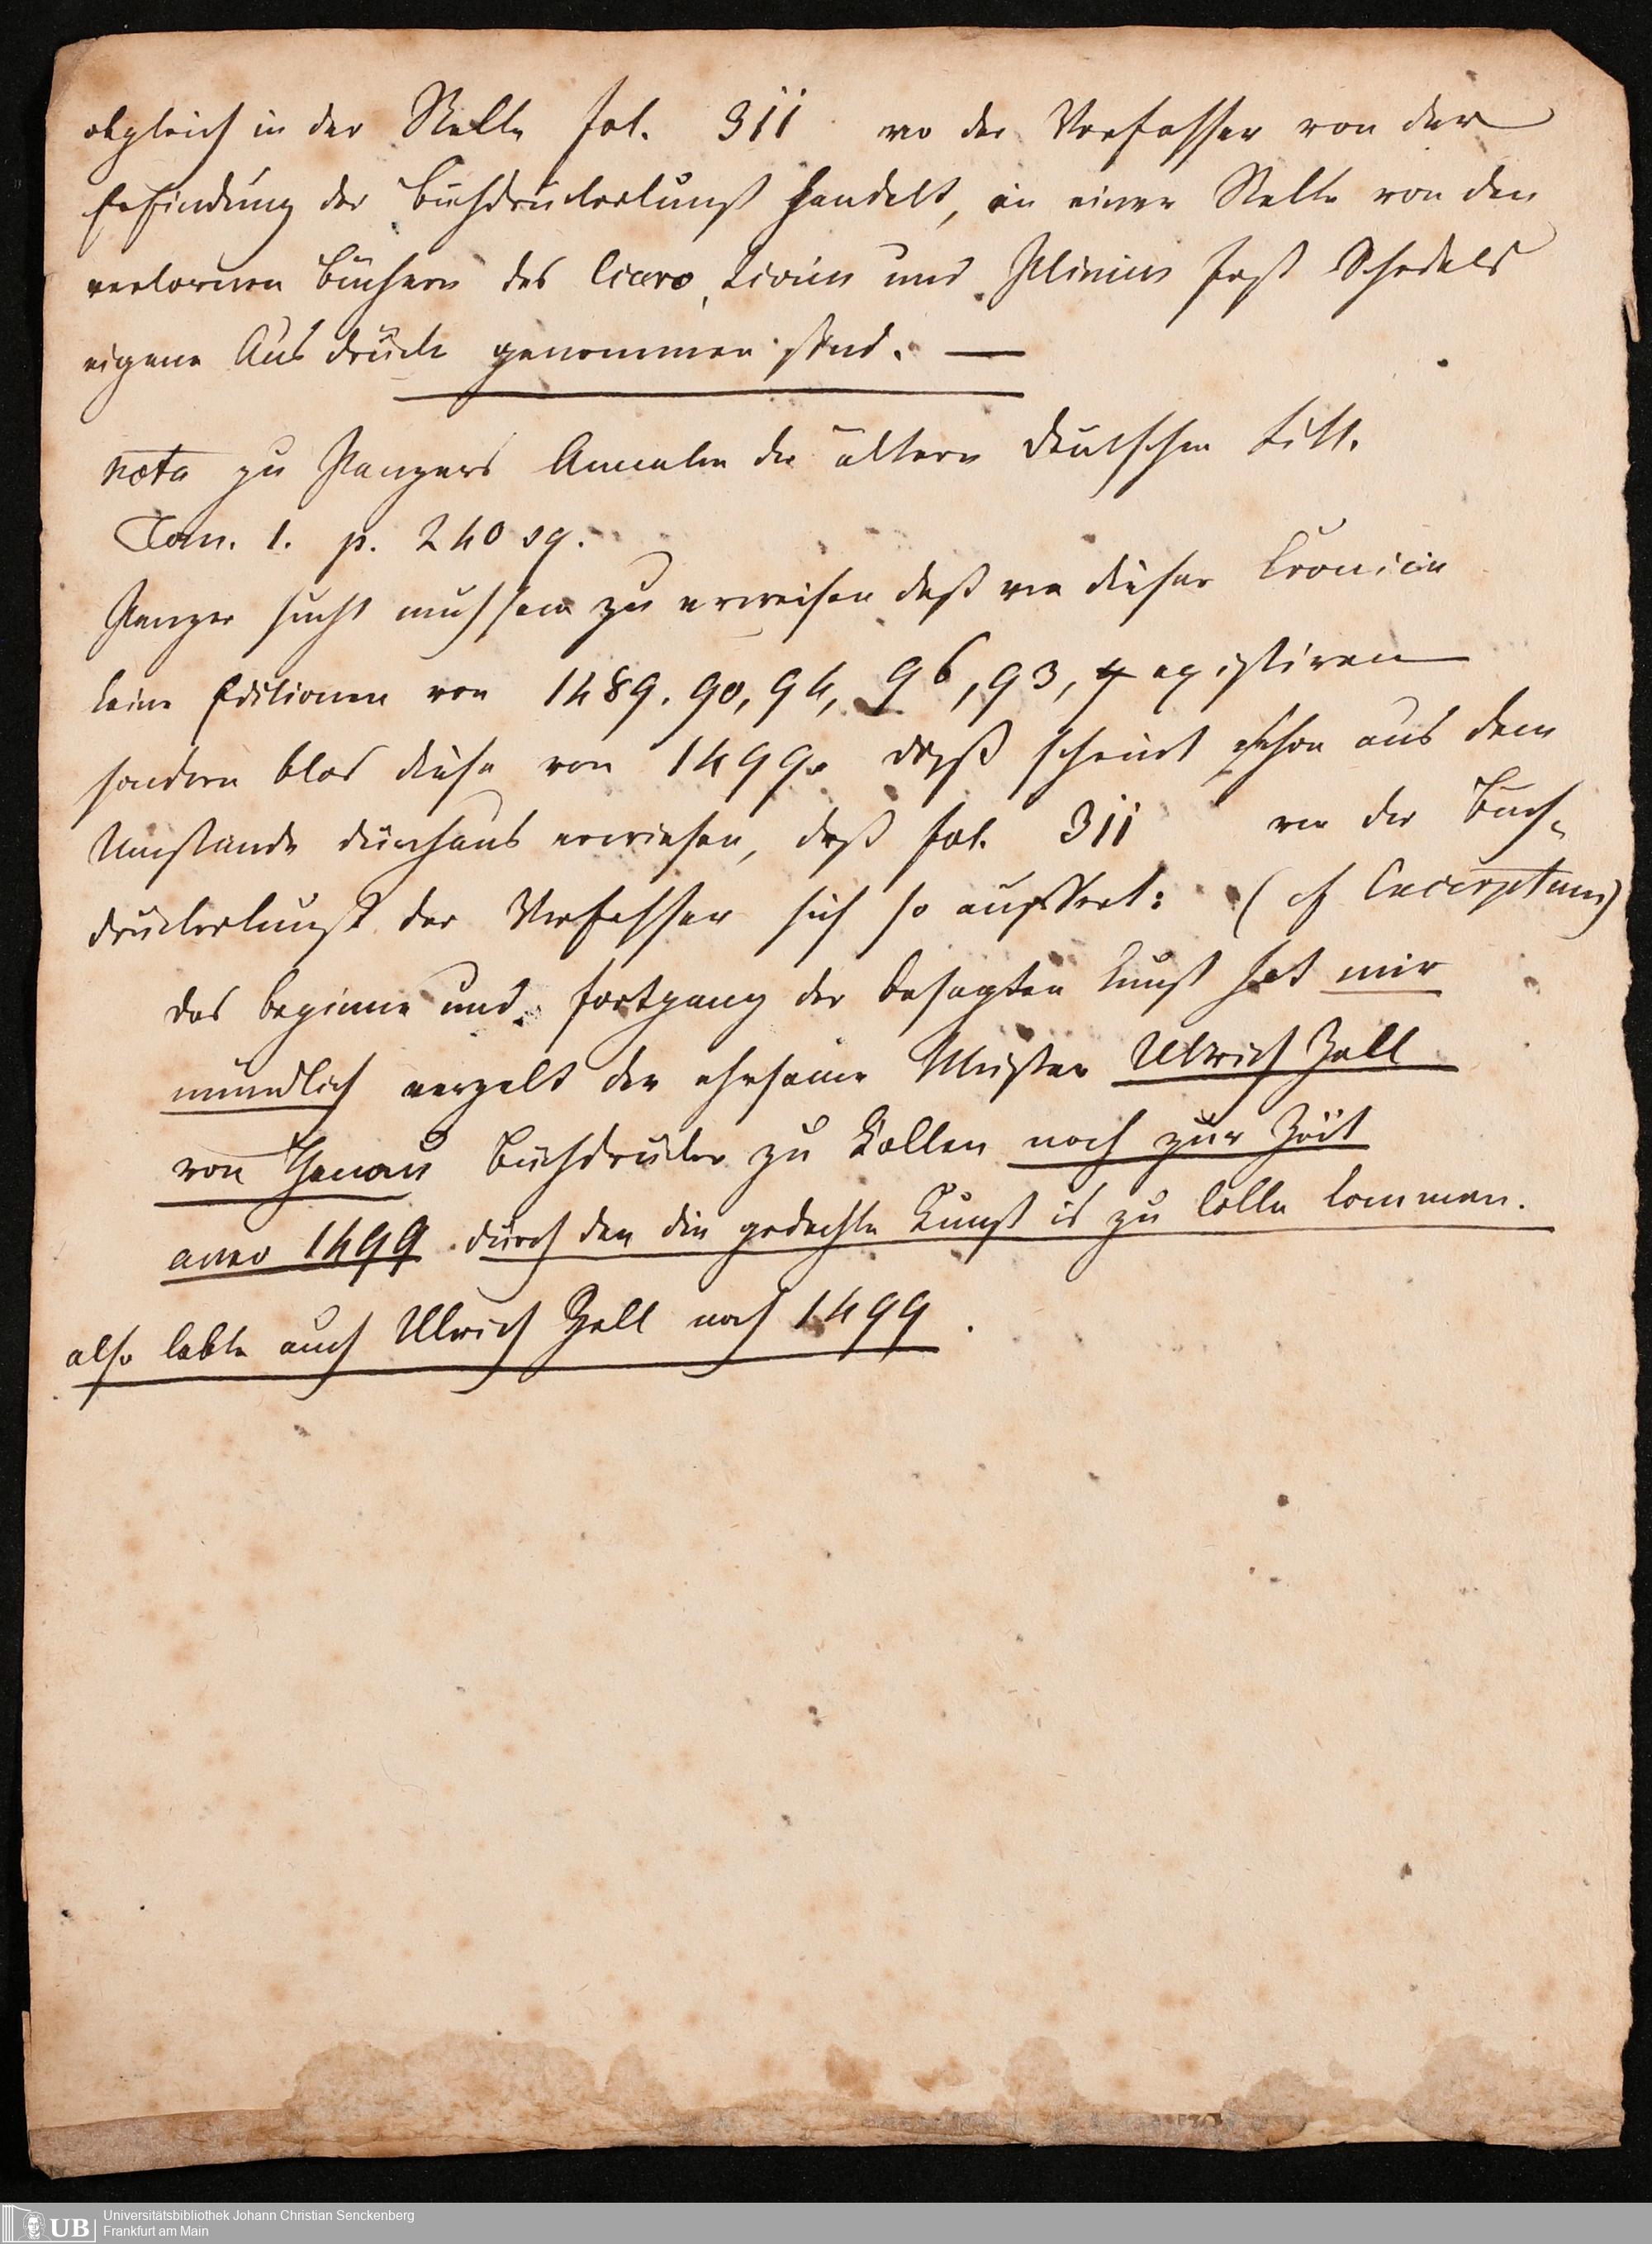 obgleich in der Stelle fol. 311 wo der Verfasser von der
Erfindung der Buchdruckerkunst handelt, in einer Stelle von den
verlornen Büchern des Cicero, Livius und Plinius fast Schedels
eigene Ausdrücke genommen sind. —
nota zu Panzers Annalen der ältern deutschen Litt.
Tom. 1. p. 240 sq.
Panzer sucht muhsam zu erweisen daß von dieser Cronick
keine Editionen von 1489. 90, 94, 96, 93, existiren
sondern blos diese von 1499. dieß scheint schon aus dem
Umstande durchaus erwiesen, daß fol. 311 wo der Buch-
druckerkunst der Verfasser sich so äussert: (cf Excerptum)
das beginne und fortgang der besagten kunst hat mir
mundlich verzelt der ehrsame Meister Ulrich Zell
von Hanau Buchdrucker zu Kollen noch zur Zeit
anno 1499 durch den die gedachte Kunst is zu Collen kommen.
also lebte auch Ulrich Zell noch 1499.
UB
Universitätsbibliothek Johann Christian Senckenberg
Frankfurt am Main